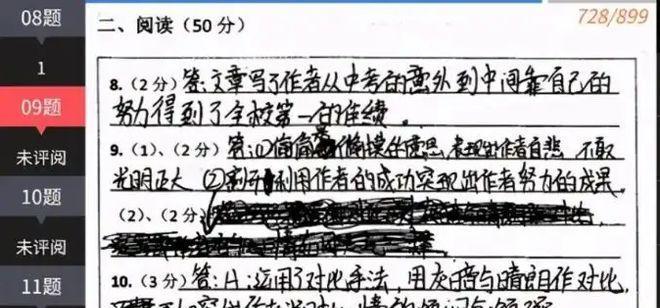 08题
1
09题
未评阅
10题
未评阅
11题
728/899
二、阅读(50分)
8.(2分)答:文章写了作者从中考的意外到中间靠自己的
努力得到了全校第一的佳绩。
9.(1)、(2分)答:①偷偷 偷摸的意思,表现出作者自悲,不敢
光明正大 ② 利用作者的成功突现出作者努力的成果。
(2)、(2分)
10.(3分)答:A:运用了对比手法,用灰暗与晴朗作对比,